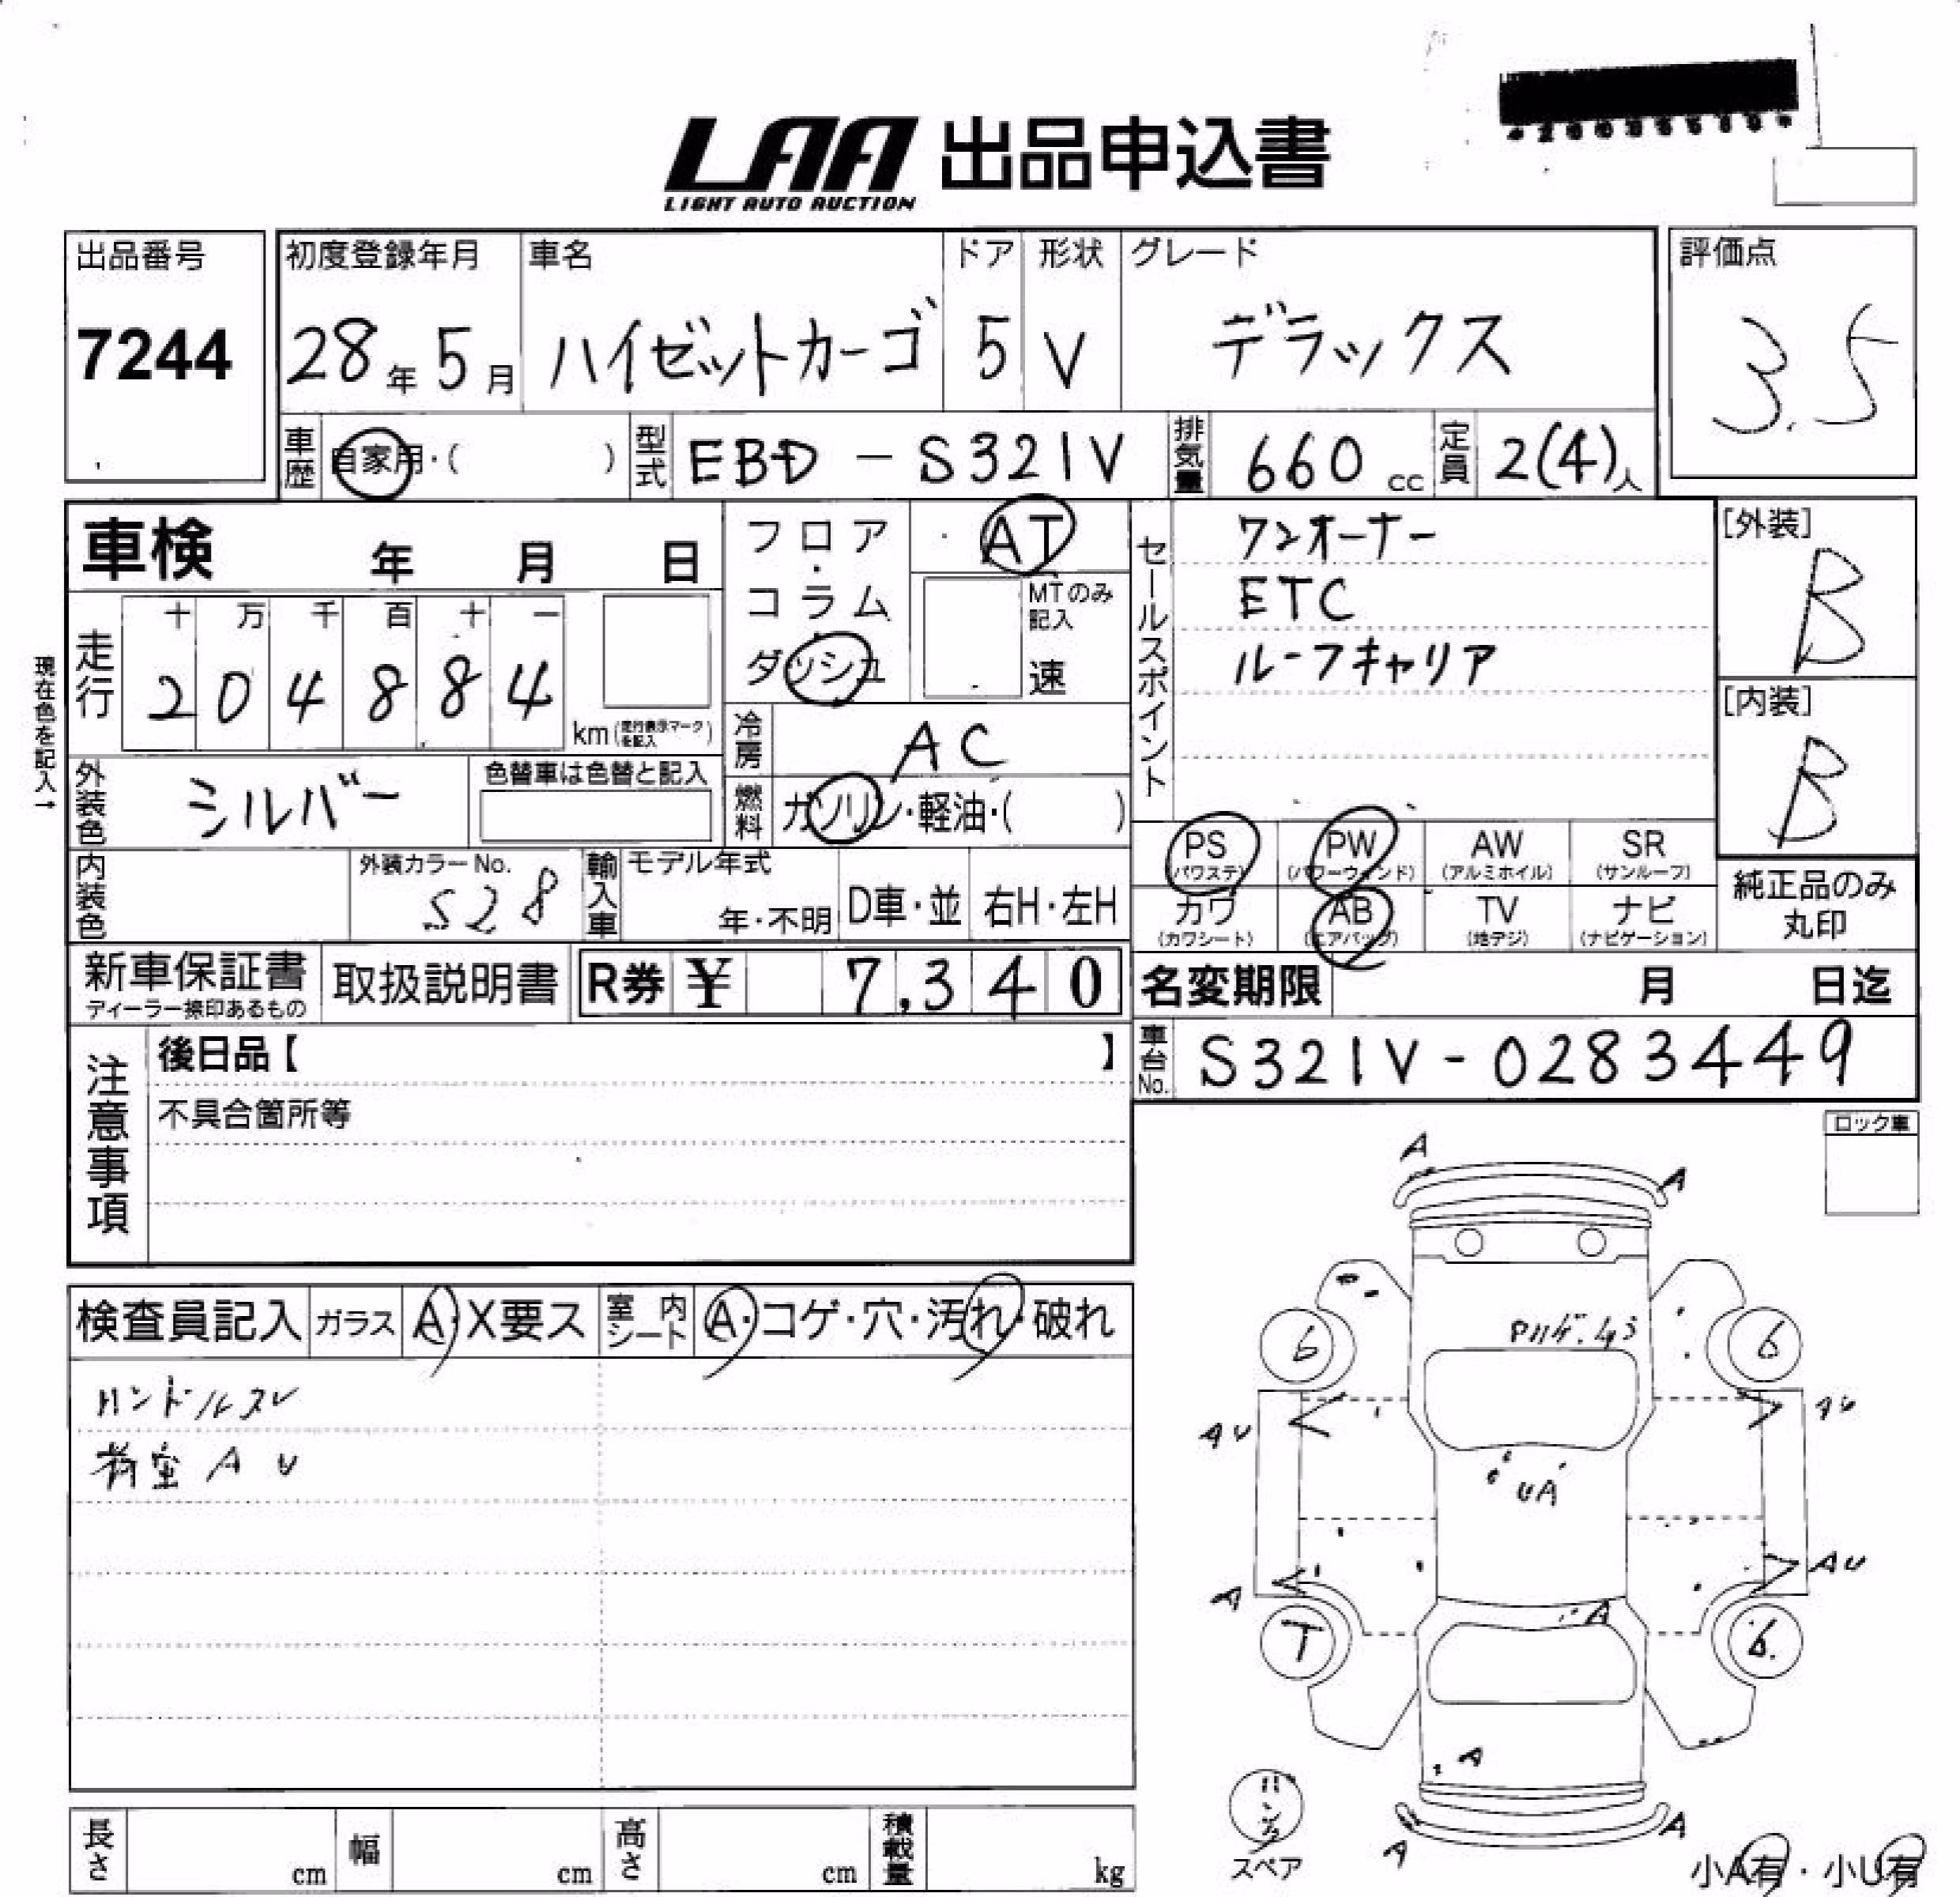 LAA 出品申込書
LIGHT AUTO AUCTION
出品番号
7244
初度登録年月
28年5月
車名
ハイゼットカーゴ
ドア
5
形状
V
グレード
デラックス
評価点
3.5
車歴 自家用・( )
型式 EBD-S321V
排気量 660cc
定員 2(4)人
車検 年 月 日
フロア・コラム・ダッシュ
AT
MTのみ記入
速
現在色を記入→
走行
十 万 千 百 十 一
2 0 4 8 8 4
km(走行表示マークを記入)
冷房 AC
外装色 シルバー
色替車は色替と記入
燃料 ガソリン・軽油・( )
内装色
外装カラーNo.
S28
輸入車
モデル年式
年・不明
D車・並
右H・左H
セールスポイント
ワンオーナー
ETC
ルーフキャリア
[外装]
B
[内装]
B
PS (パワステ)
PW (パワーウィンド)
AW (アルミホイル)
SR (サンルーフ)
カワ (カワシート)
AB (エアバッグ)
TV (地デジ)
ナビ (ナビゲーション)
純正品のみ丸印
新車保証書
ディーラー捺印あるもの
取扱説明書
R券 ¥ 7,340
名変期限 月 日迄
車台No. S321V-0283449
注意事項
後日品【 】
不具合箇所等
ロック車
検査員記入
ガラス A・X要ス
室内シート A・コゲ・穴・汚れ・破れ
ハンドルスレ
荷室 A U
A
A
6
6
AU
AU
UA
A
AU
A
T
6
A
A
A
パンク
スペア
小A有・小U有
長さ cm
幅 cm
高さ cm
積載量 kg